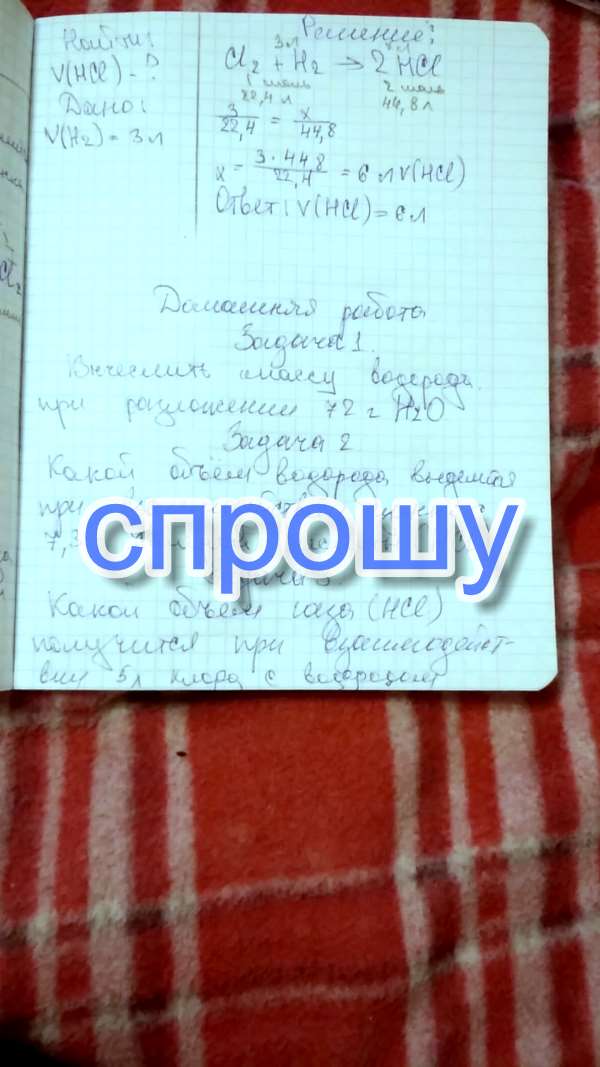 Найти:
V(HCl) - ?
Дано:
V(H2) = 3 л
Решение:
3 л
Cl2 + H2 → 2HCl
1 моль 2 моль
22,4 л 44,8 л
3/22,4 = x/44,8
x = 3 · 44,8/22,4 = 6 л V(HCl)
Ответ: V(HCl) = 6 л
Домашняя работа
Задача 1.
Вычеслить массу водорода
при разложении 72 г H2O
Задача 2
Какой объём водорода выделится
при
7,3
спрошу
Какой объём газа (HCl)
получится при взаимодейст-
вии 5л хлора с водородом